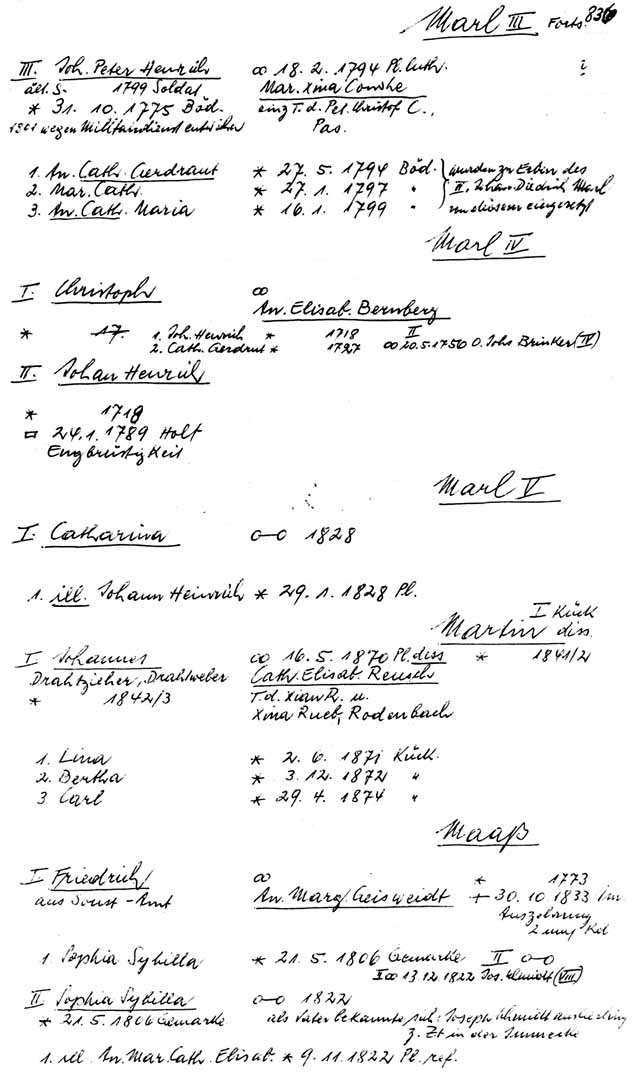 Marl III Forts. 836
III. Joh. Peter Henrich ∞ 18. 2. 1794 Pl. luth.
ält. S. 1799 Soldat Mar. Xina Comshe
* 31. 10. 1775 Böd. einz T. d. Pet. Christof C.,
wegen Militairdienst entwichen Pas.
1. An. Cath. Gerdraut * 27. 5. 1794 Böd. wurden zu Erben des
2. Mar. Cath. * 27. 1. 1797 " II. Johan Diedrich Marl
3. An. Cath. Maria * 16. 1. 1799 " von diesem eingesetzt
Marl IV
I. Christoph ∞
An. Elisab. Bernberg
* 17. 1. Joh. Henrich * 1718 II
2. Cath. Gerdrut * 1727 ∞ 20. 5. 1756 O. Johs Brinker (IV)
II. Johan Henrich
* 1718
▭ 24. 1. 1789 Holt
Engbrüstigkeit
Marl V
I. Catharina o–o 1828
1. ill. Johann Heinrich * 29. 1. 1828 Pl.
I Kück
Martin diss.
I Johannes ∞ 16. 5. 1870 Pl. diss * 1841/2
Drahtzieher, Drahtweber Cath. Elisab. Reusch
* 1842/3 T. d. Xian R. u.
Xina Rueb, Rodenbach
1. Lina * 2. 6. 1871 Kück.
2. Bertha * 3. 12. 1872 "
3. Carl * 29. 4. 1874 "
Maaß
I Friedrich ∞ * 1773
aus Soest-Amt An. Marg. Geisweidt + 30. 10. 1833 Im.
Auszehrung
2 mnj Kd
1. Sophia Sybilla * 21. 5. 1806 Gemarke II o–o
I ∞ 13. 12. 1822 Jos. Schmidt (VIII)
II Sophia Sybilla o–o 1822
* 21. 5. 1806 Gemarke als Vater bekannte sich: Joseph Schmidt
z. Zt in der Immecke
1. ill. An. Mar. Cath. Elisab. * 9. 11. 1822 Pl. ref.